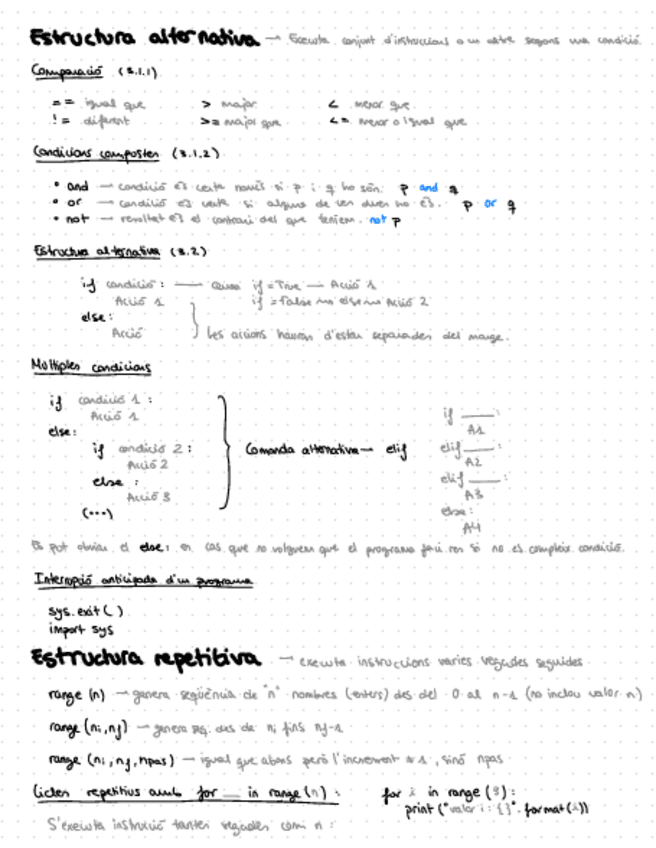 Estructura alternativa — Executa conjunt d'instruccions o un altre segons una condició.
Comparació (3.1.1)
== igual que > major < menor que
!= diferent >= major que <= menor o igual que
Condicions compostes (3.1.2)
• and — condició és certa només si p i q ho són. p and q
• or — condició és certa si alguna de les dues ho és. p or q
• not — resultat és el contrari del que teníem. not p
Estructura alternativa (3.2)
if condició: — Quan if = True — Acció 1
Acció 1 if = False → else → Acció 2
else:
Acció les accions hauran d'estar separades del marge.
Múltiples condicions
if condició 1 :
Acció 1
else:
if condició 2 :
Acció 2
else :
Acció 3
(...)
Comanda alternativa — elif
if ___ :
A1
elif ___ :
A2
elif ___ :
A3
else:
A4
Es pot obviar el else: en cas que no volguem que el programa faci res si no es compleix condició.
Interrupció anticipada d'un programa
sys.exit( )
import sys
Estructura repetitiva — executa instruccions varies vegades seguides
range (n) — genera seqüència de "n" nombres (enters) des del 0 al n-1 (no inclou valor n)
range (ni, nf) — genera seq. des de ni fins nf-1
range (ni, nf, npas) — igual que abans però l'increment ≠ 1, sinó npas
Cicles repetitius amb for __ in range (n) :
S'executa instrucció tantes vegades com n :
for i in range (8) :
print ("valor i : {}". format(i))